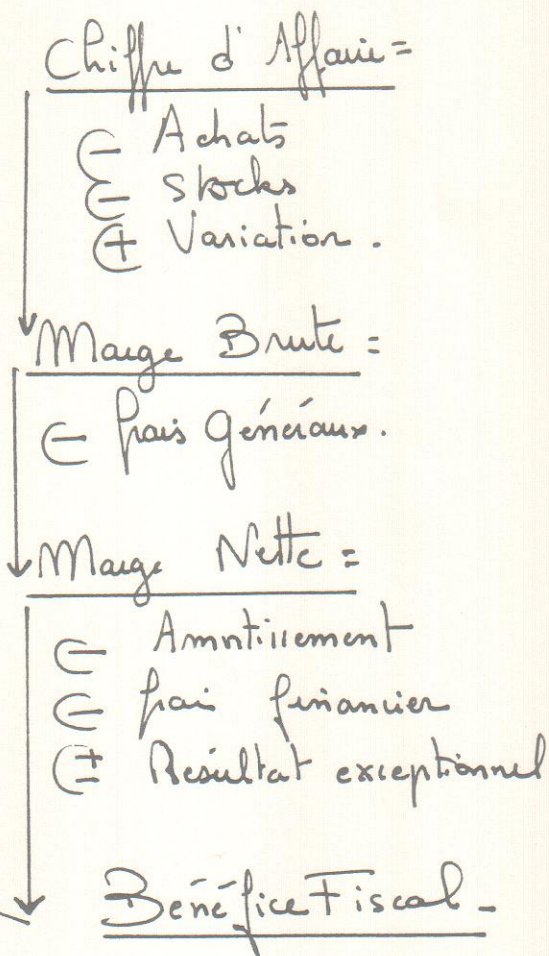 Chiffre d'Affaire =
- Achats
- Stocks
+ Variation.
Marge Brute =
- frais Généraux.
Marge Nette =
- Amortissement
- frais financier
± Résultat exceptionnel
Bénéfice Fiscal -